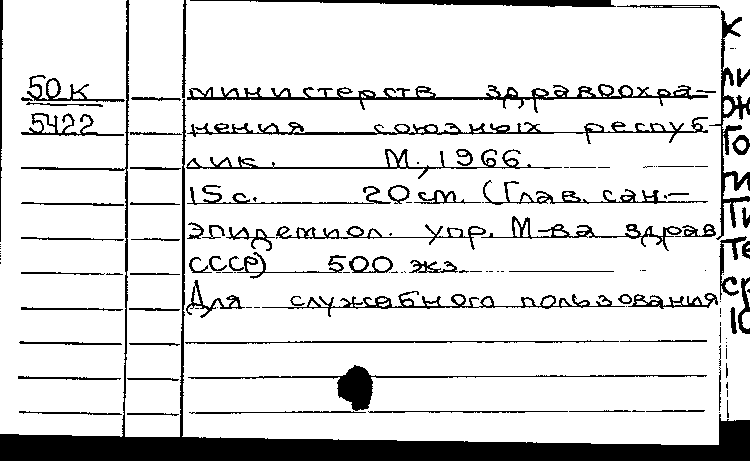 50к
5422
министерств здравоохра-
нения союзных респуб-
лик. М., 1966.
15 с. 20 см. (Глав. сан.-
эпидемиол. упр. М-ва здрав.
СССР) 500 экз.
Для служебного пользования
К
ли
Ж
Го
ги
Ти
Те
ср
10